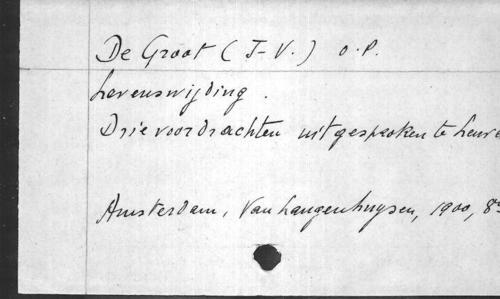 De Groot (J-V.) O.P.
Levenswijding.
Drie voordrachten uitgesproken te Leuve
Amsterdam, Van Langenhuysen, 1900, 8°